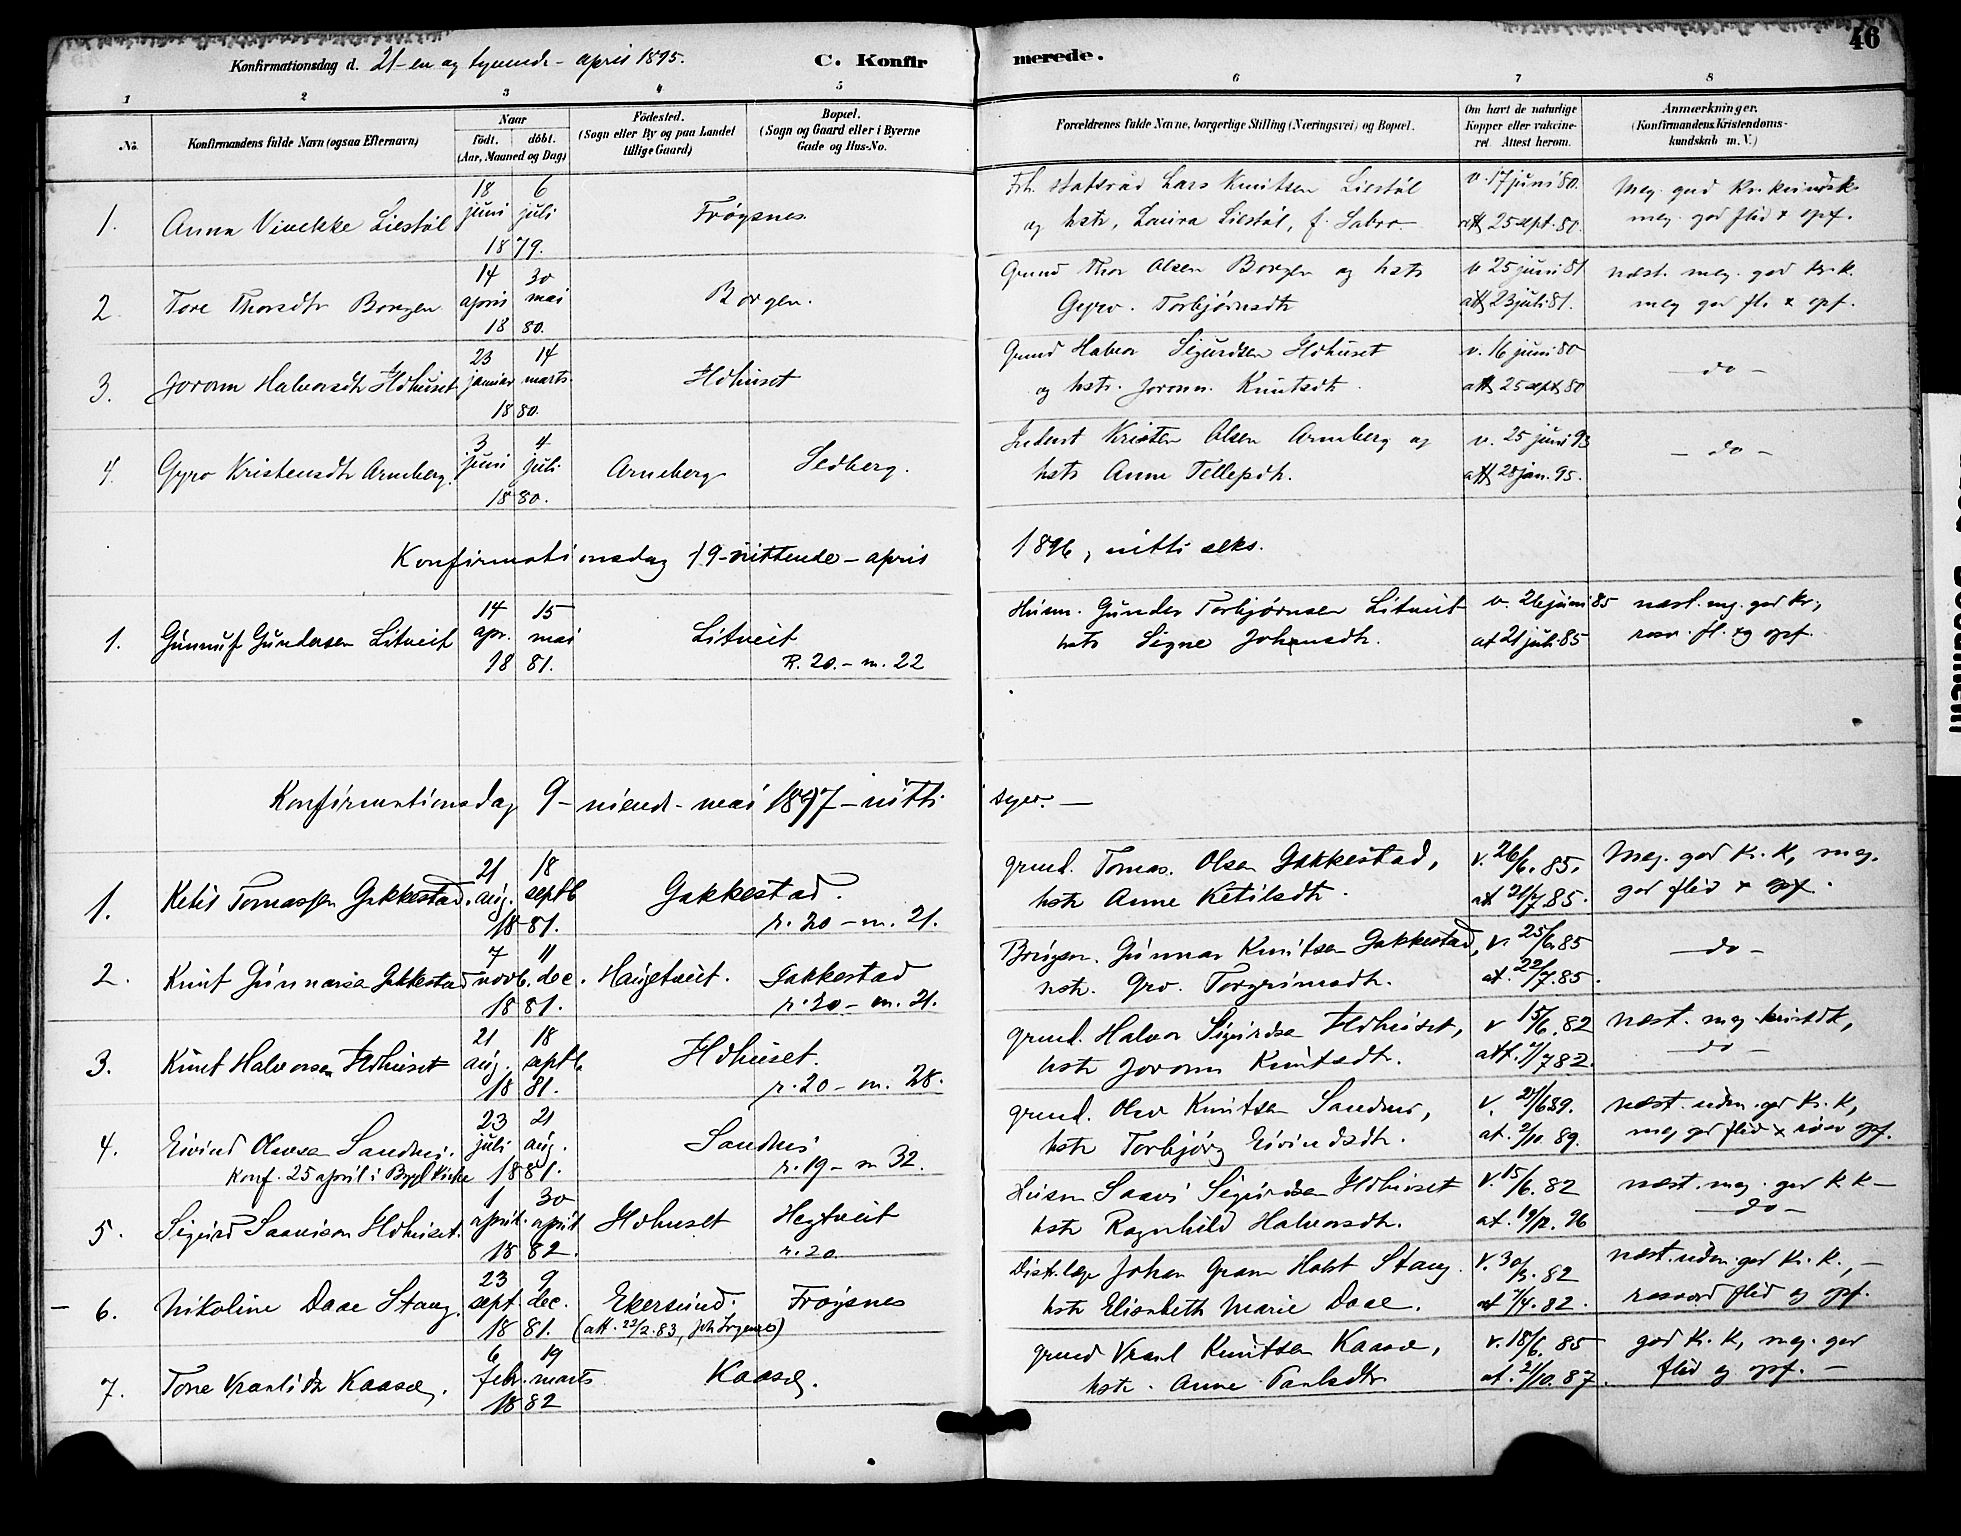 46
Konfirmationsdag d. 21-en og tyvende - april 1895.
C. Konfirmerede.
1 2 3 4 5 6 7 8
No.
Konfirmandens fulde Navn (ogsaa Efternavn)
Naar
født. døbt.
(Aar, Maaned og Dag)
Fødested.
(Sogn eller By og paa Landet tillige Gaard)
Bopæl.
(Sogn og Gaard eller i Byerne Gade og Hus-No.
Forældrenes fulde Navne, borgerlige Stilling (Næringsvei) og Bopæl.
Om havt de naturlige Kopper eller vakcineret. Attest herom.
Anmærkninger.
(Konfirmandens Kristendomskundskab m. V.)
1. Anna Vivekke Liestøl 18 juni 6 juli 1879. Frøysnes
Fh. statsråd Lars Knutsen Liestøl v. 17 juni 80. Meg. god kr. kundsk.
og hstr, Laura Liestøl, f. Sabro att 25 sept. 80. meg. god flid & opf.
2. Tore Thorsdtr Borgen 14 april 30 mai 1880. Borgen.
Grund Thor Olsen Borgen og hstr v 25 juni 81 næst. meg. god kr. k.
Gyro. Torbjørnsdtr att 23 juli 81. meg god fl. & opf.
3. Joronn Halvorsdtr Hdhuset 23 januar 14 marts 1880. Hdhuset
Grund Halvor Sigurdsen Hdhuset v. 16 juni 80 - do -
og hstr. Joronn. Knutsdtr. att 25 sept 80
4. Gyro Kristensdtr Arneberg. 3 juni 4 juli 1880. Arneberg Sedberg.
Inderst Kristen Olsen Arneberg og v. 25 juni 93 - do -
hstr Anne Tellefsdtr. att 28 jan. 95.
Konfirmationsdag 19-nittende - april 1896, nitti seks.
1. Gunnuf Gundersen Litveit 14 apr. 15 mai 1881. Litveit
R. 20. - m. 22
Husm. Gunder Torbjørnsen Litveit v. 26 juni 85 næst. mg. god kr.,
hstr Signe Johansdtr. at 21 juli 85 rosv. fl. og opf.
Konfirmationsdag 9 - niende - mai 1897 - nitti syv. -
1. Ketil Tomassen Gakkestad. 21 aug. 18 septb 1881. Gakkestad.
r. 20 - m. 21.
grund. Tomas. Olsen Gakkestad, v. 26/6. 85. Meg. god kr. k, meg.
hstr Anne Ketilsdtr. att 21/7 85. god flid & opf.
2. Knut Gunnarsen Gakkestad 7 novb. 11 dec. 1881. Haugetveit. Gakkestad
r. 20 - m. 21.
Brugsm. Gunnar Knutsen Gakkestad, v. 25/6 85 - do -
hstr. Gro. Torgrimsdtr. at. 22/7. 85.
3. Knut Halvorsen Hdhuset 21 aug. 18 septb. 1881. Hdhuset.
r. 20 - m. 28.
grund. Halvor Sigurdsen Hdhuset, v 15/6. 82 næst. meg. kristdk,
hstr Joronn Knutsdtr. att. 7/7 82. - do -
4. Eivind Olavsen Sandnes. 23 juli 21 aug. 1881. Sandnes
Konf. 25 april i Bygl. Kirke r. 19 - m 32.
grund. Olav Knutsen Sandnes, v. 21/6 89. næst. udm. god kr. k,
hstr Torbjørg Eivindsdtr. at. 2/10. 89. meg god flid & rosv opf.
5. Sigurd Saavison Hdhuset. 1 april. 30 april 1882. Hdhuset Hegtveit
r. 20
Husm Saavi Sigurdsen Hdhuset v. 15/6. 82 næst. meg. god k k -
hstr Ragnhild Halvorsdtr. at. 19/12. 96 - do -
- 6. Nikoline Daae Stang. 23 sept. 9 dec. 1881. Ekersund. Frøysnes
(att. 22/2. 83, )
Distr. læge Johan Gram Holst Stang. v. 30/3. 82 næst. udm. god kr. k., -
hstr Elisabeth Marie Daae. at 7/4. 82. rosværd flid og opf.
7. Tone Vraalsdtr Kaasæ. 6 febr. 19 marts 1882 Kaasæ.
grund Vraal Knutsen Kaasæ, v. 18/6. 85 god kr. k, meg. god
hstr. Anne Paalsdtr at. 21/10. 87. flid og opf. -